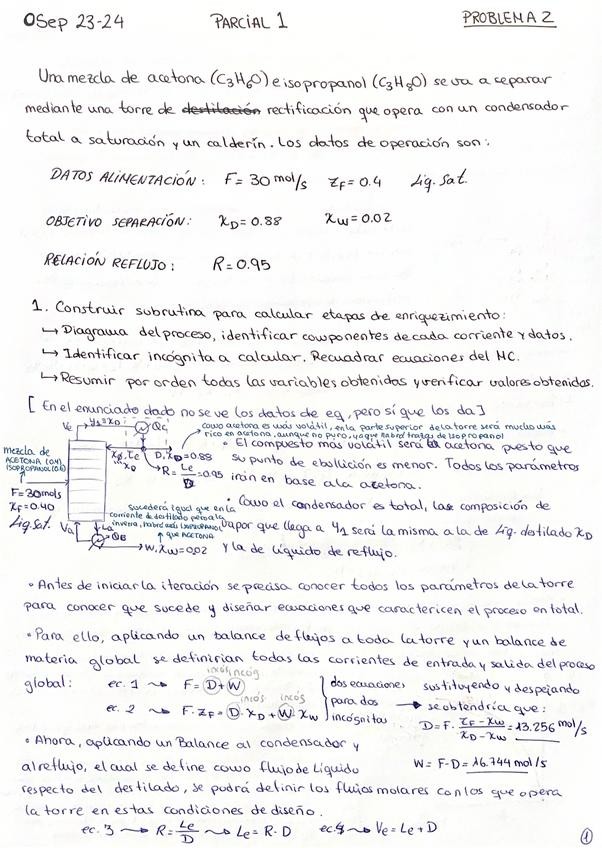 OSep 23-24 PARCIAL 1 PROBLEMA 2
Una mezcla de acetona (C3H6O) e isopropanol (C3H8O) se va a separar
mediante una torre de destilación rectificación que opera con un condensador
total a saturación y un calderín. Los datos de operación son:
DATOS ALIMENTACIÓN: F = 30 mol/s ZF = 0.4 Liq. Sat.
OBJETIVO SEPARACIÓN: XD = 0.88 XW = 0.02
RELACIÓN REFLUJO: R = 0.95
1. Construir subrutina para calcular etapas de enriquezimiento:
↳ Diagrama del proceso, identificar componentes de cada corriente y datos.
↳ Identificar incógnita a calcular. Recuadrar ecuaciones del MC.
↳ Resumir por orden todas las variables obtenidas y verificar valores obtenidos.
[ En el enunciado dado no se ve los datos de eq, pero sí que los da ]
Ve y1=xD Qc
como acetona es más volátil, en la parte superior de la torre será mucho más
rico en acetona, aunque no puro, ya que habrá trazas de isopropanol
mezcla de
ACETONA (0.4)
ISOPROPANOL (0.6)
F = 30 mols
XF = 0.40
Liq. Sat.
xD D, XD = 0.88
R = Le/D = 0.95
• El compuesto más volátil será la acetona puesto que
su punto de ebullición es menor. Todos los parámetros
irán en base a la acetona.
sucederá igual que en la
corriente de destilado pero a la
inversa, habrá más ISOPROPANOL
que ACETONA
Va La QB
W, XW = 0,02
• Como el condensador es total, las composición de
vapor que llega a y1 será la misma a la de Liq. destilado XD
y la de líquido de reflujo.
• Antes de iniciar la iteración se precisa conocer todos los parámetros de la torre
para conocer que sucede y diseñar ecuaciones que caractericen el proceso en total.
• Para ello, aplicando un balance de flujos a toda la torre y un balance de
materia global se definirían todas las corrientes de entrada y salida del proceso
global: ec. 1 F = D + W incóg incóg
ec. 2 F · ZF = D · XD + W · XW incóg incóg
dos ecuaciones
para dos
incógnitas
sustituyendo y despejando
se obtendría que:
D = F · (ZF - XW)/(XD - XW) = 13.256 mol/s
W = F - D = 16.744 mol/s
• Ahora, aplicando un Balance al condensador y
al reflujo, el cual se define como flujo de líquido
respecto del destilado, se podrá definir los flujos molares con los que opera
la torre en estas condiciones de diseño.
ec. 3 R = Le/D Le = R · D ec. 4 Ve = Le + D
1